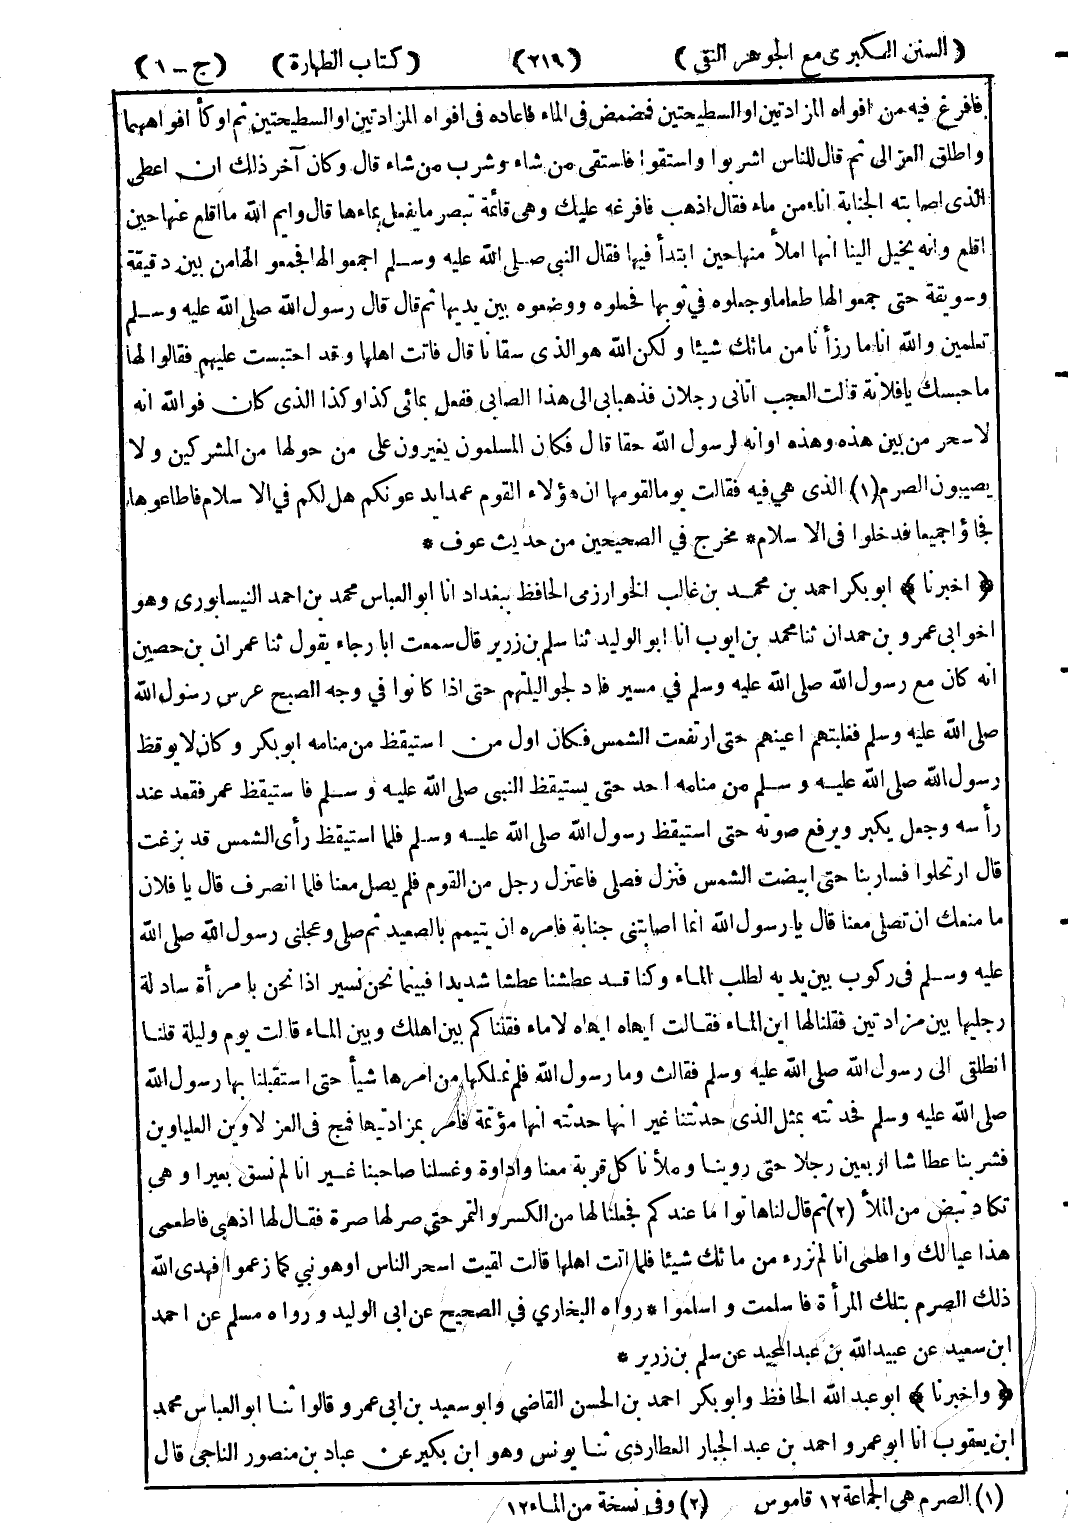 (السنن الكبرى مع الجوهر النقى) (٢١٩) (كتاب الطهارة) (ج - ١)
فافرغ فيه من افواه المزادتين او السطيحتين فمضمض فى الماء فاعاده فى افواه المزادتين او السطيحتين ثم اوكأ افواههما
واطلق العزالى ثم قال للناس اشربوا واستقوا فاستقى من شاء وشرب من شاء قال وكان آخر ذلك ان اعطى
الذى اصابته الجنابة اناء من ماء فقال اذهب فافرغه عليك وهى قائمة تبصر ما يفعل بماءها قال وايم الله ما اقلع عنها حين
اقلع وانه يخيل الينا انها املأ منها حين ابتدأ فيها فقال النبى صلى الله عليه وسلم اجمعوا لها فجمعوا لها من بين دقيقة
وسويقة حتى جمعوا لها طعاما وجعلوه في ثوبها فحملوه ووضعوه بين يديها ثم قال قال رسول الله صلى الله عليه وسلم
تعلمين والله انا ما رزأنا من مائك شيئا ولكن الله هو الذى سقانا قال فاتت اهلها وقد احتبست عليهم فقالوا لها
ما حبسك يا فلانة قالت العجب اتانى رجلان فذهبا بى الى هذا الصابى ففعل بمائى كذا وكذا الذى كان فو الله انه
لاسحر من بين هذه وهذه او انه لرسول الله حقا قال فكان المسلمون يغيرون على من حولها من المشركين ولا
يصيبون الصرم (١) الذى هي فيه فقالت يوما لقومها ان هؤلاء القوم عمدا يدعونكم هل لكم في الاسلام فاطاعوها
فجاؤا جميعا فدخلوا فى الاسلام * مخرج في الصحيحين من حديث عوف *
﴿اخبرنا﴾ ابو بكر احمد بن محمد بن غالب الخوارزمى الحافظ ببغداد انا ابو العباس محمد بن احمد النيسابورى وهو
اخو ابى عمرو بن حمدان ثنا محمد بن ايوب انا ابو الوليد ثنا سلم بن زرير قال سمعت ابا رجاء يقول ثنا عمران بن حصين
انه كان مع رسول الله صلى الله عليه وسلم في مسير فادلجوا ليلتهم حتى اذا كانوا في وجه الصبح عرس رسول الله
صلى الله عليه وسلم فغلبتهم اعينهم حتى ارتفعت الشمس فكان اول من استيقظ من منامه ابو بكر وكان لا يوقظ
رسول الله صلى الله عليه وسلم من منامه احد حتى يستيقظ النبى صلى الله عليه وسلم فاستيقظ عمر فقعد عند
رأسه وجعل يكبر ويرفع صوته حتى استيقظ رسول الله صلى الله عليه وسلم فلما استيقظ رأى الشمس قد بزغت
قال ارتحلوا فسار بنا حتى ابيضت الشمس فنزل فصلى فاعتزل رجل من القوم فلم يصل معنا فلما انصرف قال يا فلان
ما منعك ان تصلى معنا قال يا رسول الله انما اصابتنى جنابة فامره ان يتيمم بالصعيد ثم صلى وعجلنى رسول الله صلى الله
عليه وسلم فى ركوب بين يديه لطلب الماء وكنا قد عطشنا عطشا شديدا فبينما نحن نسير اذا نحن بامرأة سادلة
رجليها بين مزادتين فقلنا لها اين الماء فقالت ايهاه ايهاه لا ماء فقلنا كم بين اهلك وبين الماء قالت يوم وليلة قلنا
انطلقى الى رسول الله صلى الله عليه وسلم فقالت وما رسول الله فلم نملكها من امرها شيأ حتى استقبلنا بها رسول الله
صلى الله عليه وسلم فحدثته بمثل الذى حدثتنا غير انها حدثته انها مؤتمة فامر بمزادتيها فمج فى العزلاوين العلياوين
فشربنا عطاشا اربعين رجلا حتى روينا وملأنا كل قربة معنا واداوة وغسلنا صاحبنا غير انا لم نسق بعيرا وهي
تكاد تبض من الملأ (٢) ثم قال لنا هاتوا ما عندكم فجعلنا لها من الكسر والتمر حتى صر لها صرة فقال لها اذهبى فاطعمى
هذا عيالك واعلمى انا لم نزرء من مائك شيئا فلما اتت اهلها قالت لقيت اسحر الناس او هو نبي كما زعموا فهدى الله
ذلك الصرم بتلك المرأة فاسلمت واسلموا * رواه البخاري في الصحيح عن ابى الوليد ورواه مسلم عن احمد
ابن سعيد عن عبيد الله بن عبد المجيد عن سلم بن زرير *
﴿واخبرنا﴾ ابو عبد الله الحافظ وابو بكر احمد بن الحسن القاضي وابو سعيد بن ابى عمرو قالوا ثنا ابو العباس محمد
ابن يعقوب انا ابو عمرو احمد بن عبد الجبار العطاردى ثنا يونس وهو ابن بكير عن عباد بن منصور الناجى قال
(١) الصرم هى الجماعة ١٢ قاموس (٢) وفى نسخة من الماء ١٢